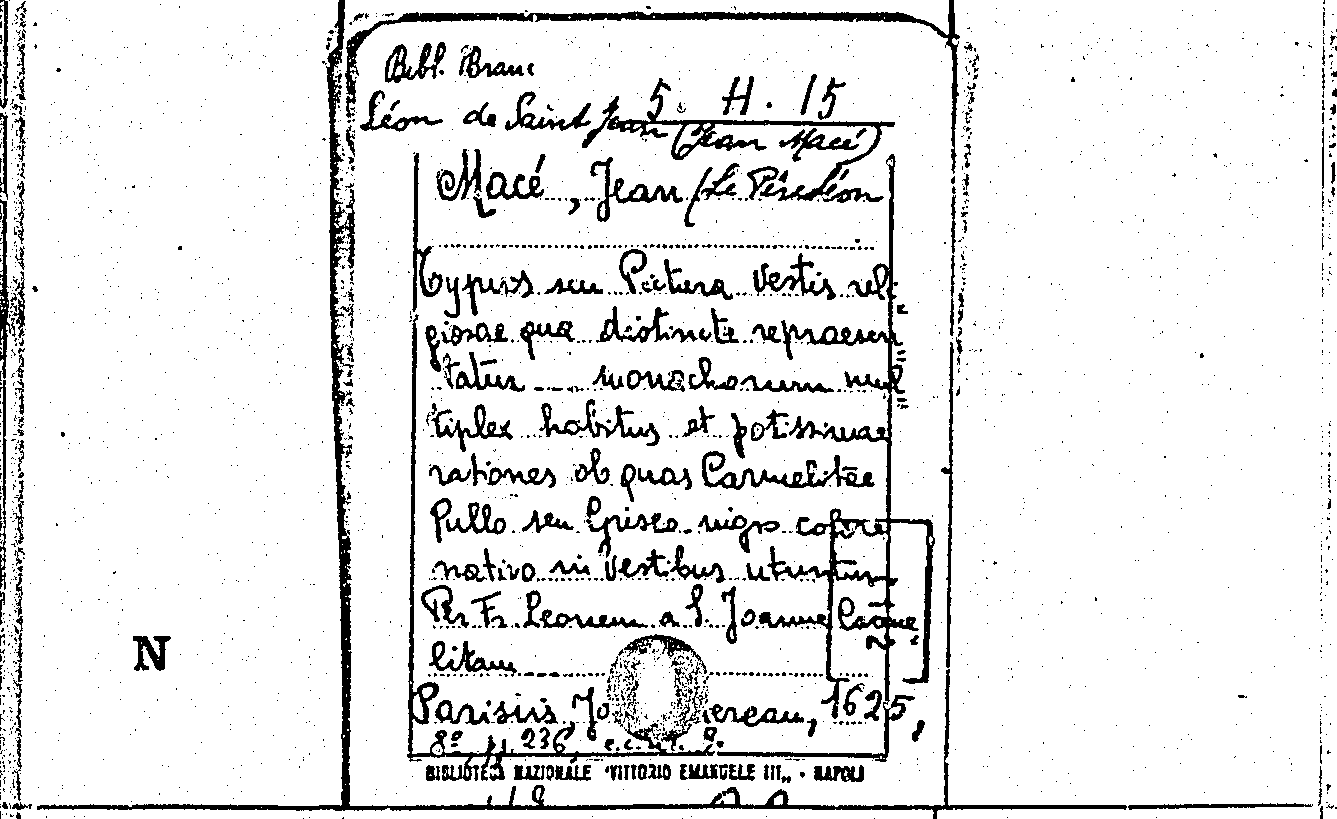 Bibl. Branc
5. H. 15
Léon de Saint Jean (Jean Macé)
Macé, Jean (Le Père Léon
Typus seu Pictura Vestis reli-
giosae qua distincte repraesen
tatur ... monachorum mul
tiplex habitus et potissimae
rationes ob quas Carmelitae
Pullo seu Griseo-nigro colore
nativo in Vestibus utuntur
Per Fr. Leonem a S. Joanne Carme
litam
N
Parisiis, Jo ereau, 1625,
8º, pp. 236,
BIBLIOTECA NAZIONALE "VITTORIO EMANUELE III" - NAPOLI